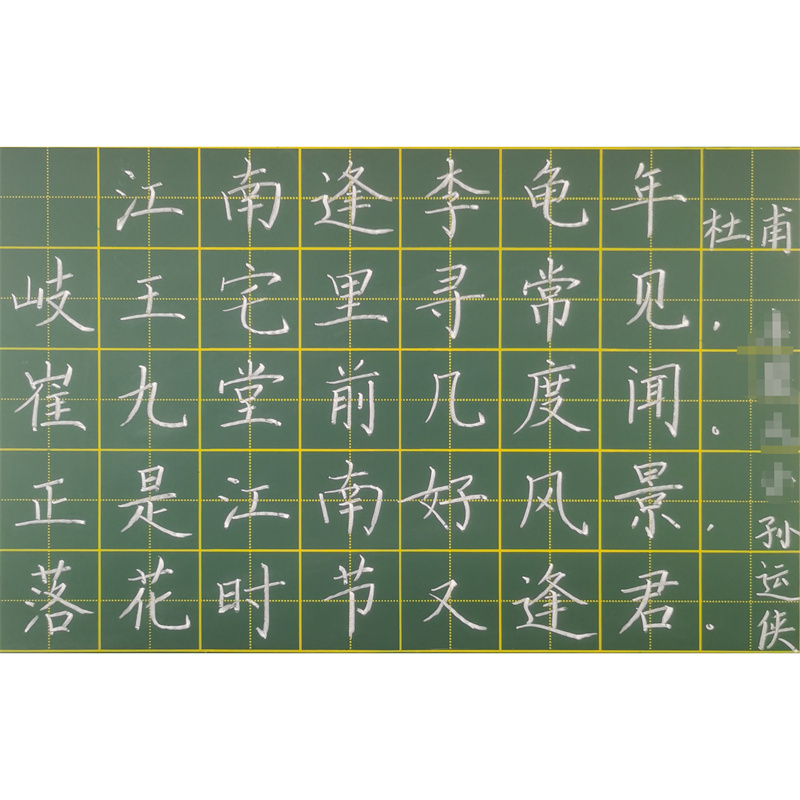 江南逢李龟年
杜甫
岐王宅里寻常见，
崔九堂前几度闻。
正是江南好风景，
落花时节又逢君。
孙运侠